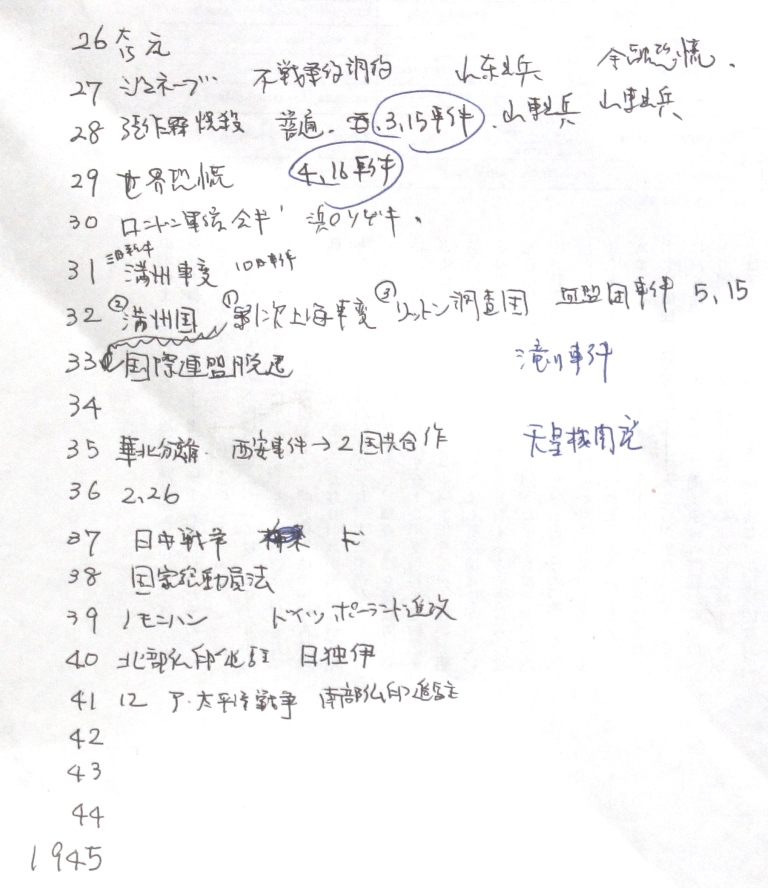 26 大15 元
27 ジュネーブ 不戦条約調約 山东出兵 金融恐慌.
28 張作霖爆殺 普通. 3,15事件. 山東出兵 山東出兵
29 世界恐慌 4,16事件
30 ロンドン軍 浜口
31 三月事件 満州事変 10月事件
32 ②満州国 ①第1次上海事変 ③リットン調査団 血盟団事件 5,15
33 国際連盟脱退 滝川事件
34
35 華北分離. 西安事件→2国共合作 天皇機関説
36 2,26
37 日中戦争 ド
38 国家総動員法
39 ノモンハン ドイツポーランド進攻
40 北部仏印進駐 日独伊
41 12 ア・太平洋戦争 南部仏印進駐
42
43
44
1945